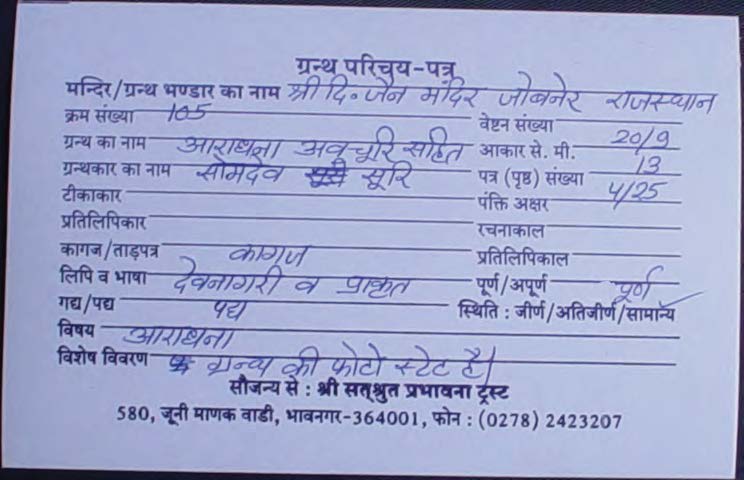 ग्रन्थ परिचय-पत्र
मन्दिर/ग्रन्थ भण्डार का नाम श्री दि॰ जैन मंदिर जोबनेर राजस्थान
क्रम संख्या 105 वेष्टन संख्या
ग्रन्थ का नाम आराधना अवचूरि सहित आकार से. मी. 20/9
ग्रन्थकार का नाम सोमदेव सूरि पत्र (पृष्ठ) संख्या 13
टीकाकार पंक्ति अक्षर 4/25
प्रतिलिपिकार रचनाकाल
कागज/ताड़पत्र कागज प्रतिलिपिकाल
लिपि व भाषा देवनागरी व प्राकृत पूर्ण/अपूर्ण पूर्ण
गद्य/पद्य पद्य स्थिति : जीर्ण/अतिजीर्ण/सामान्य
विषय आराधना
विशेष विवरण ग्रन्थ की फोटो स्टेट है।
सौजन्य से : श्री सत्श्रुत प्रभावना ट्रस्ट
580, जूनी माणक वाडी, भावनगर-364001, फोन : (0278) 2423207